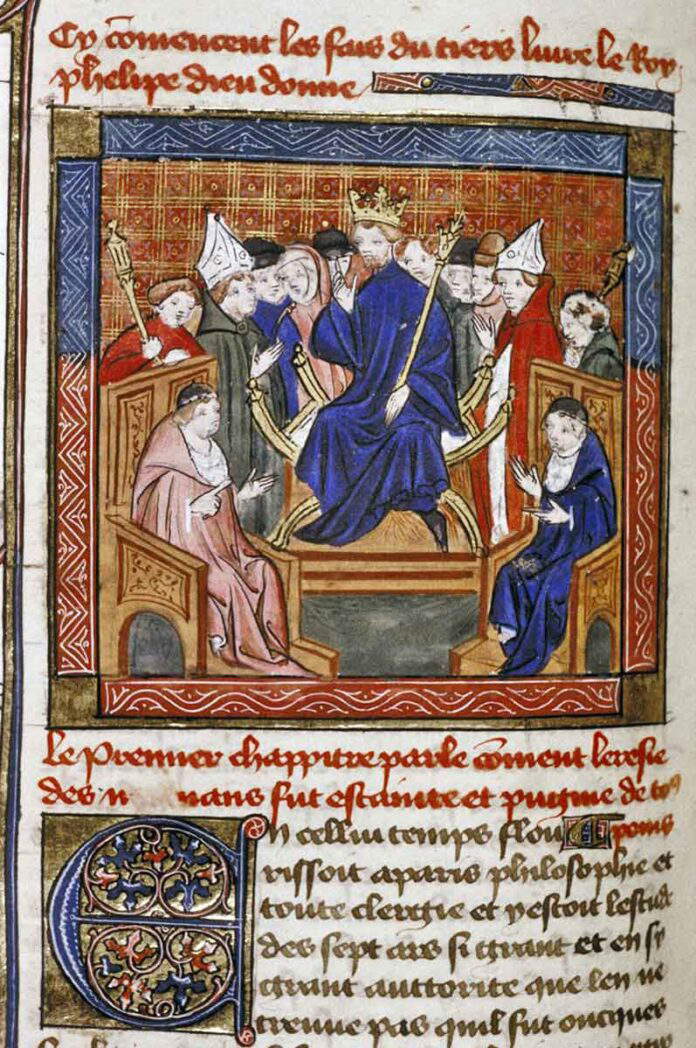 Cy cōmencent les fais du tiers liure le Roy
phelipe dieu donne
le Premier chappitre parle cōment leresie
des fut estainte et puignie de toꝯ
En cellui temps flou poins
rissoit aparis philosophie et
toute clergie et yestoit lestude
des sept ars si grant et en sy
grant auttorite que len ne
treuue pas quil fut oncques